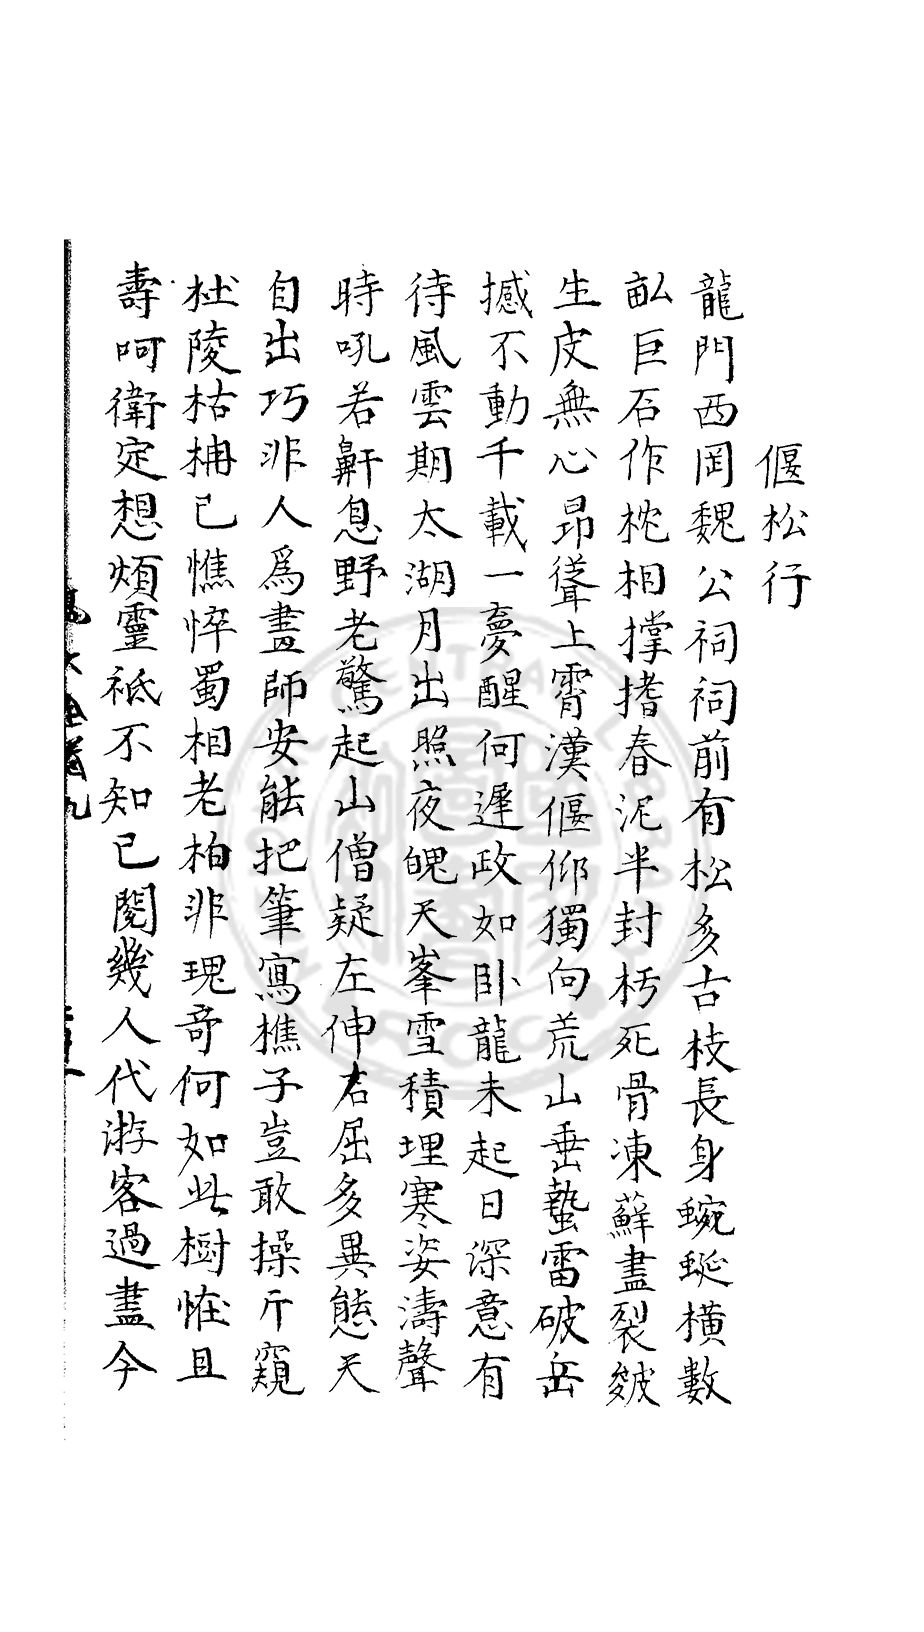 偃松行
龍門西岡魏公祠祠前有松多古枝長身蜿蜒橫數
畝巨石作枕相撑搘春泥半封朽死骨凍蘚盡裂皴
生皮無心昻聳上霄漢偃仰獨向荒山垂蟄雷破岳
撼不動千載一夢醒何遲政如卧龍未起日深意有
待風雲期太湖月出照夜魄天峯雪積埋寒姿濤聲
時吼若鼾息野老驚起山僧疑左伸右屈多異態天
自出巧非人爲畫師安能把筆寫樵子豈敢操斤窺
杜陵枯枏已憔悴蜀相老柏非瑰竒何如此樹恠且
壽呵衛定想煩靈祗不知已閱幾人代游客過盡今